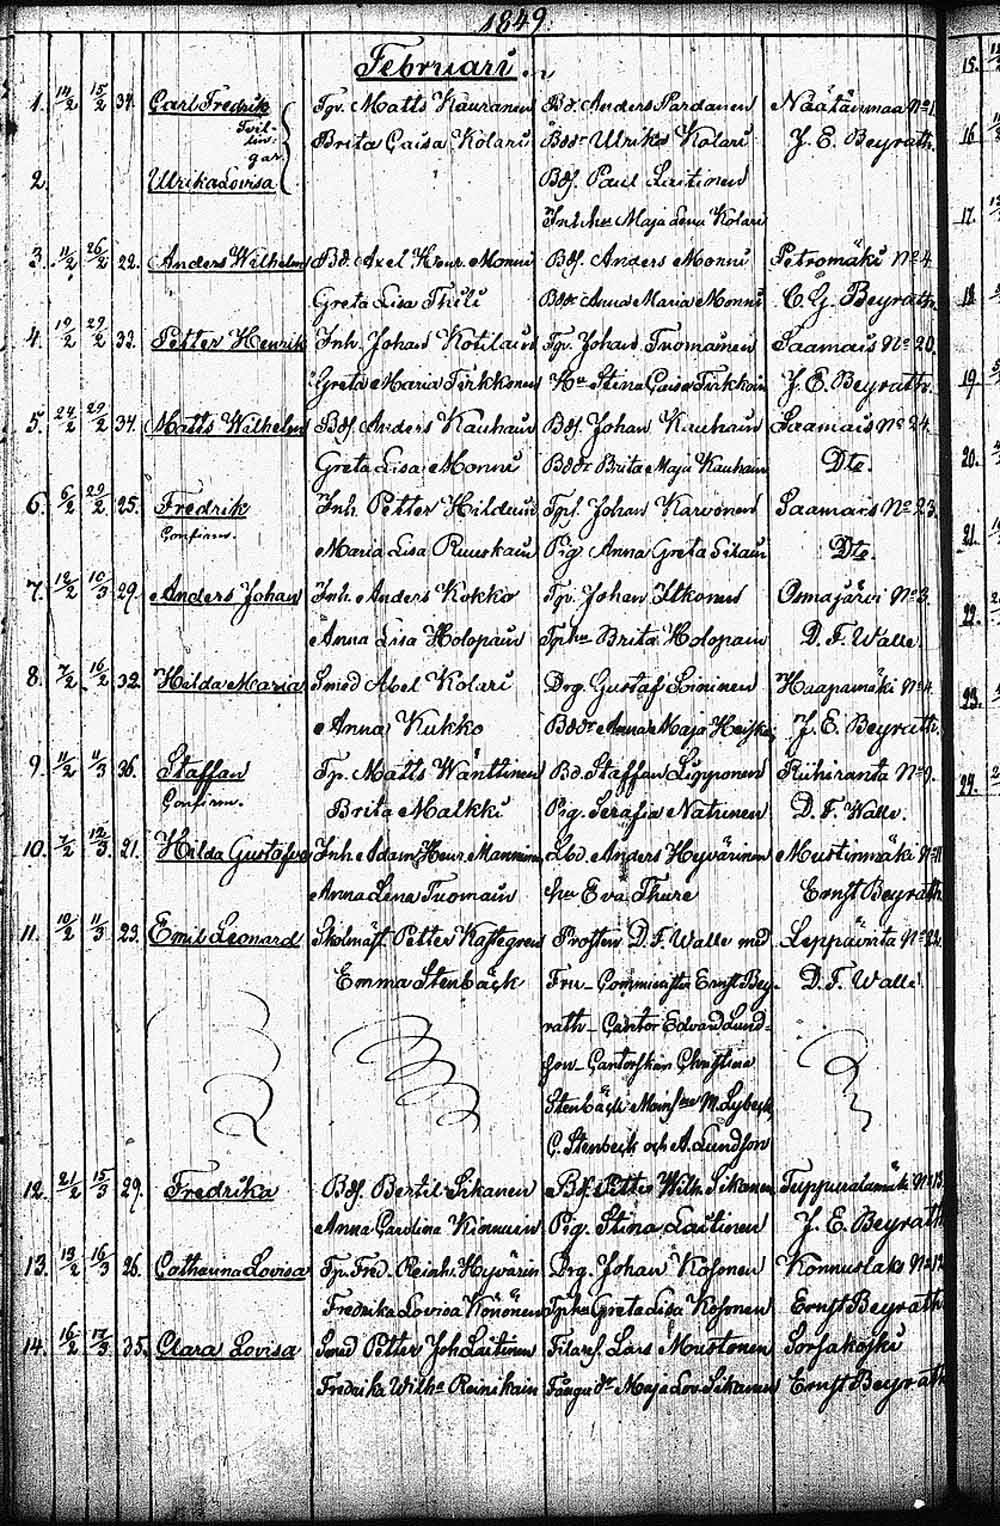 1849.
Februari
1. 14/2 15/2 34. Carl Fredrik Tpr. Matts Kauranen Bd. Anders Pardanen Näätänmaa No 1.
Tvil-
lin-
gar. Brita Caisa Kolari Bddr Ulrika Kolari J. E. Beyrath.
2. Ulrika Lovisa Bds. Paul Laitinen
Inh. hu Maja Lena Kolari
3. 11/2 26/2 22. Anders Wilhelm Bd. Axel Henr. Monni Bds. Anders Monni Petromäki No 4.
Greta Lisa Thili Bddr Anna Maria Monni C. G. Beyrath.
4. 19/2 29/2 33. Petter Henrik Inh. Johan Kotilain Tpr. Johan Tuomainen Saamais No 20.
Greta Maria Tirkkonen Hu Stina Caisa Tirkkoin J. E. Beyrath.
5. 24/2 29/2 34. Matts Wilhelm Bds. Anders Kauhain Bds. Johan Kauhain Saamais No 24.
Greta Lisa Monni Bddr Brita Maja Kauhain Dto.
6. 6/2 29/2 25. Fredrik Inh. Petter Hilduin Tps. Johan Karvonen Saamais No 23.
Confirm. Maria Lisa Ruuskain Pig. Anna Greta Sikain Dto.
7. 12/2 10/3 29. Anders Johan Inh. Anders Kokko Tpr. Johan Itkonen Osmajärvi No 3.
Anna Lisa Holopain Tp hu Brita Holopain D. F. Walle.
8. 7/2 16/2 32. Hilda Maria Smed Abel Kolari Drg. Gustaf Soininen Haapamäki No 4.
Anna Kukko Bddr Anna Maja Heisk J. E. Beyrath.
9. 11/2 11/3 36. Staffan Tp. Matts Wänttinen Bd. Staffan Lipponen Riihiranta No 9.
Confirm. Brita Malkki Pig. Serafia Natunen D. F. Walle.
10. 7/2 12/3 21. Hilda Gustafva Inh. Adam Henr. Manninen Lbd. Anders Hyvärinen Mustinmäki No 11
Anna Lena Tuomain hu Eva Thure Ernst Beyrath
11. 10/2 11/3 23. Emil Leonard Skolmäst. Petter Kastegren Prosten D. F. Walle med Leppävirta No 22.
Emma Stenbäck Fru - Commin Ernst Bey- D. F. Walle.
rath - Cantor Edvard Lund-
son - Cantorskan Christina
Stenbäck M. Lybeck,
C. Stenbeck och A. Lundson
12. 21/2 15/3 29. Fredrika Bds. Bertil Sikanen Bds. Petter Wilh. Sikanen Tuppuralamäki No 13.
Anna Carolina Kinnunin Pig. Stina Laitinen J. E. Beyrath
13. 13/2 16/3 26. Catharina Lovisa Tp. Fred. Reinh. Hyvärin Drg. Johan Kosonen Konnuslaks No 12
Fredrika Lovisa Könönen Tp hu Greta Lisa Kosonen Ernst Beyrath
14. 16/2 17/3 35. Clara Lovisa Smed Petter Joh Laitinen Filars. Lars Mustonen Sorsakoski
Fredrika Wilha Reinikain Maja Lov. Sikanen Ernst Beyrath
15.
16.
17.
18.
19.
20.
21.
22.
23.
24.